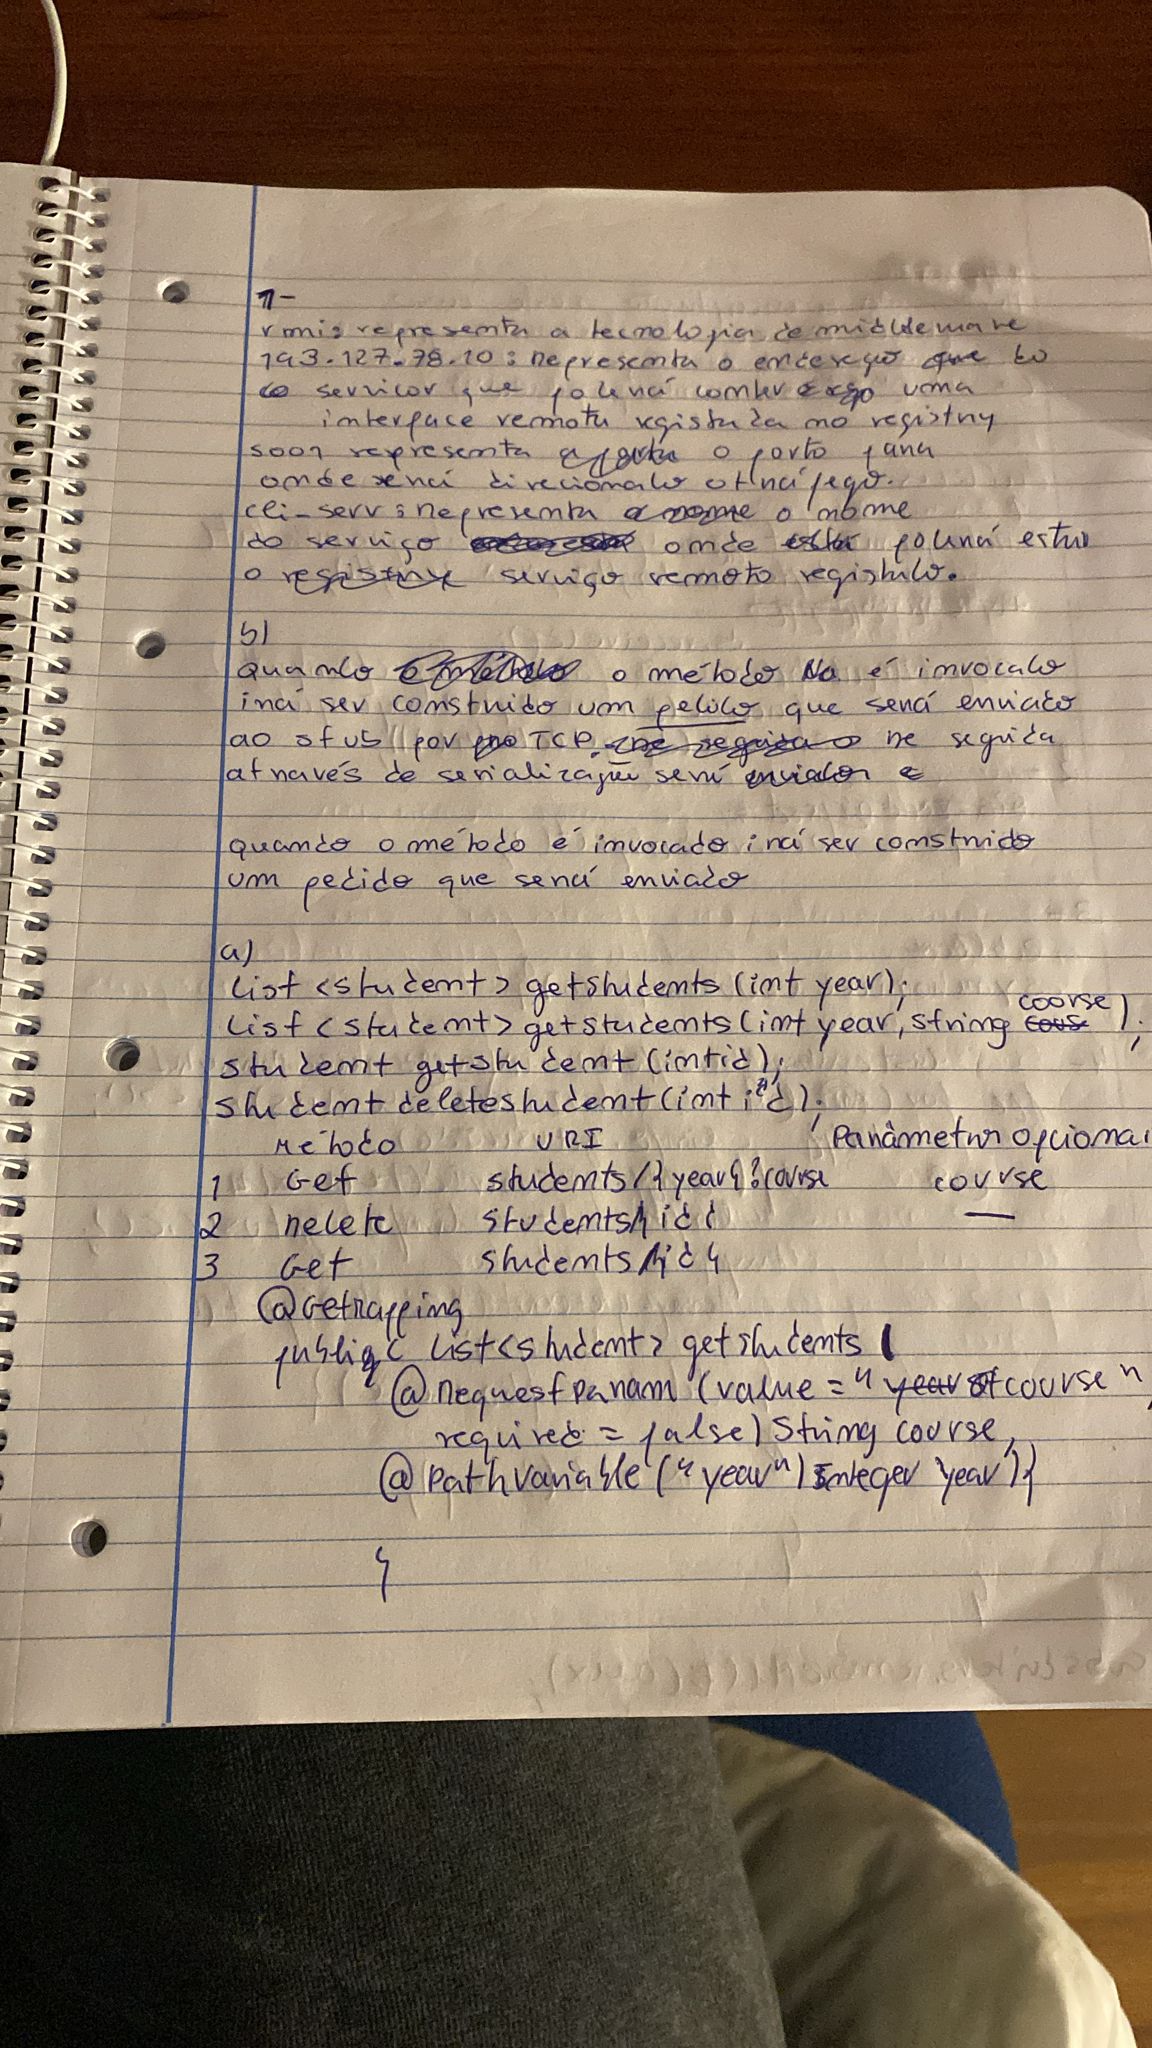 1-
rmi: representa a tecnologia de middleware
193.127.78.10: Representa o endereço do
servidor que poderá conter uma
interface remota registada no registry
5001 representa o porto para
onde será direcionado o tráfego.
cli_serv: Representa o nome
do serviço onde poderá estar
o serviço remoto registado.
b)
Quando o método é invocado
irá ser construido um pedido que será enviado
ao stub por TCP. De seguida
através de serialização será
quando o método é invocado irá ser construido
um pedido que será enviado
a)
List <student> getstudents (int year);
List <student> getstudents (int year, string course);
student getstudent (int id);
student deletestudent (int id);
Método URI Parâmetros opcionai
1 Get students/{year}?course course
2 Delete students/{id} —
3 Get students/{id}
@Getmapping
public List<student> getstudents (
@RequestParam (value = "course",
required = false) String course,
@PathVariable ("year") Integer year){
}